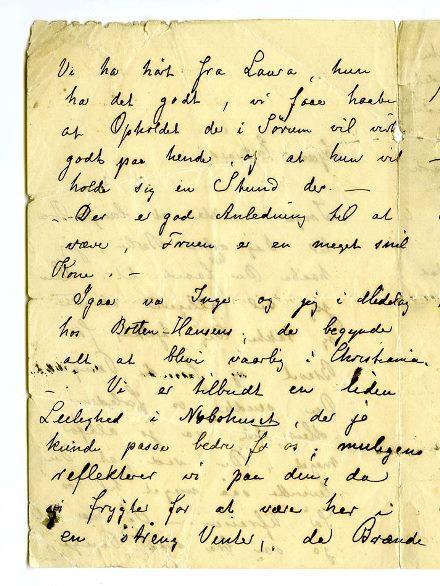 Vi ha hört fra Laura, hun
ha det godt, vi faae haabe
at Opholdet de i Sørum vil virke
godt paa hende, og at hun vil
holde sig en Stund der. —
— Der er god Anledning til at
være, Fruen er en meget snil
Kone. —
Igaa va Inge og jeg i Middag
hos Botten-Hansens, de begynde
alt at blive vaarlig i Christiania.
— Vi er tilbudt en liden
Leilighed i Nabohuset, der jo
kunde passe bedre for os, muligens
reflekterer vi paa den, da
vi frygter for at være her i
en streng Vinter, da Brænde